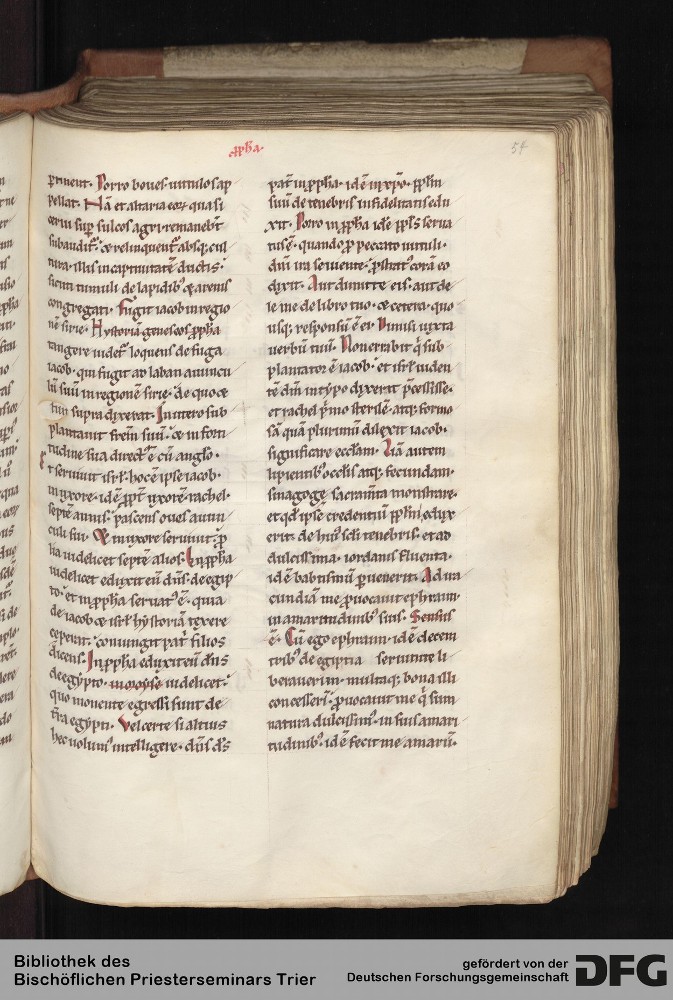 ꝓpha.
54
ꝑtinent. Porro boues uitulos ap
pellat. Nā et altaria eoꝝ quasi
cerui suꝑ sulcos agri remanebt̄
subauditꝰ. & relinquent̄ absqꝫ cul
tura. illis in captiuitatē ductis.
sicut tumuli de lapidibꝰ & arenis
congregati. Fugit iacob in regio
nē sirie. Hystoriā geneseos ꝓpha
tangere uidet̄ loquens de fuga
iacob. qui fugit ad laban auuncu
lū suū in regionē sirie. de quo &
supra dixerat. In utero sub
plantauit frēm suū. & in forti
tudine sua directꝰ ē cū anglo.
Et seruiuit isrl. hoc ē ipse iacob.
in uxore. idē ꝓpt̄ uxorē rachel.
septē annis. pascens oues auun
culi sui. Et in uxore seruiuit. ꝓ
lia uidelicet septē alios. In ꝓpha
uidelicet eduxit eū dn̄s de egip
to. et in ꝓpha seruatꝰ ē. quia
de iacob & isrl hystoriā texere
ceperat. coniungit pat̄ filios
dicens. In ꝓpha eduxit eū dn̄s
de egypto. in moyse uidelicet.
quo monente egressi sunt de
t̄ra egypti. Vel certe si altius
hec uolumꝰ intelligere. dn̄s dꝰs
pat̄ in ꝓpha. idē in xp̄o. ppl̄m
suū de tenebris infidelitatis edu
xit. Porro in ꝓpha idē ppl̄s serua
tus ē. quando ꝓ peccato uituli.
dn̄m ꝓstratꝰ corā eo
dixit. Aut dimitte eis. aut de
le me de libro tuo. & cetera. quo
usqꝫ responsū ē ei. Dimisi iuxta
uerbū tuū. Non errabit qͥ sub
plantator ē iacob. et isrl uiden
tē dm̄ in typo dixerit p̄cessisse.
et rachel pͥmo sterilē atqꝫ formo
sā quā plurimū dilexit iacob.
significare ecclām. Liā autem
lipientibꝰ oculis atqꝫ fecundam.
sinagogę sacram̄ta monstrare.
et qd̄ ipse credentiū ppl̄m edux
erit. de huiꝰ scl̄i tenebris. et ad
dulcissima. iordanis fluenta.
idē babtismū ꝑuenerit. Ad ira
cundiā me ꝓuocauit ephraim.
in amaritudinibus suis. Sensus
ē. Cū ego ephraim. idē decem
tribꝰ de egiptia seruitute li
berauerim. multaqꝫ bona illi
concesserī. ꝓuocauit me qͥ sum
natura dulcissimꝰ. in suis amari
tudinibꝰ. idē fecit me amarū.
Bibliothek des
Bischöflichen Priesterseminars Trier
gefördert von der
Deutschen Forschungsgemeinschaft
DFG